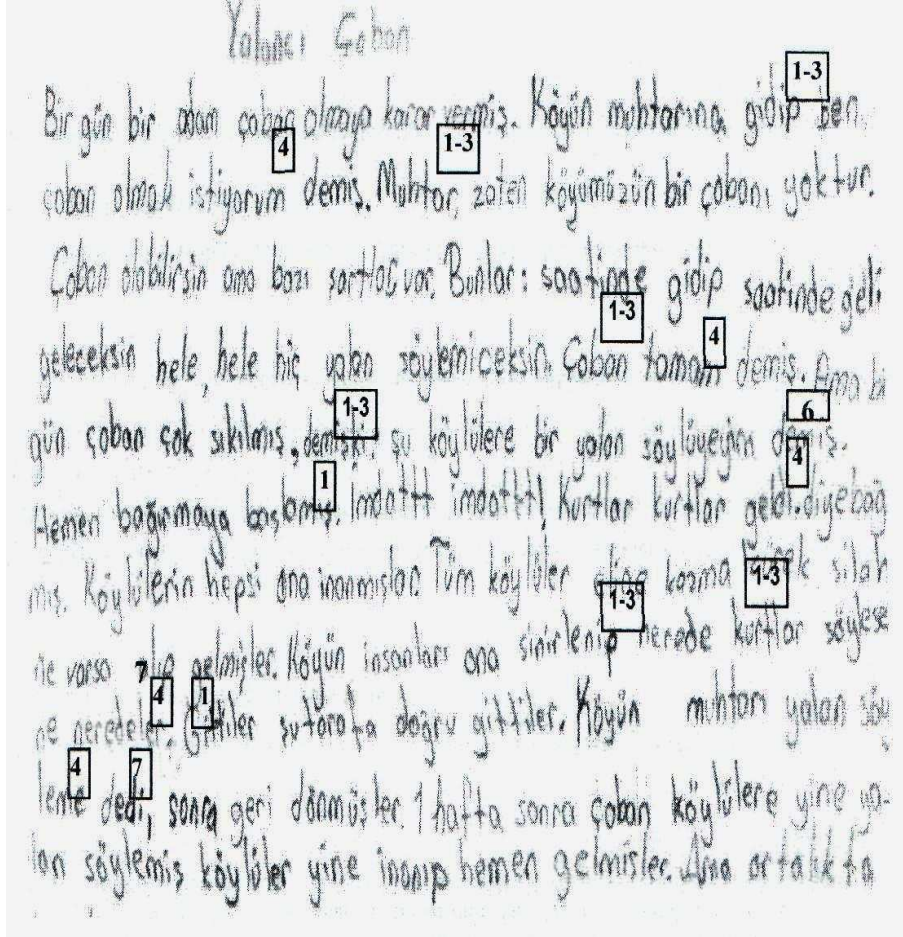 Yalancı Çoban
1-3
Bir gün bir adam çoban olmaya karar vermiş. Köyün muhtarına gidip ben
4 1-3
çoban olmak istiyorum demiş. Muhtar, zaten köyümüzün bir çobanı yoktur.
Çoban olabilirsin ama bazı şartlar var. Bunlar: saatinde gidip saatinde geli
1-3 4
geleceksin hele, hele hiç yalan söylemiceksin. Çoban tamam demiş. Ama bi
1-3 6
gün çoban çok sıkılmış, demişki şu köylülere bir yalan söylüyeyim demiş.
1 4
Hemen bağırmaya başlamış. İmdattt imdattt! Kurtlar kurtlar geldi. diye bağ
mış. Köylülerin hepsi ona inanmışlar. Tüm köylüler eline kazma kürek silah
1-3 1-3
ne varsa alıp gelmişler. Köyün insanları ona sinirlenip nerede kurtlar söylese
7 4 1
ne neredeler. Gittiler şu tarafa doğru gittiler. Köyün muhtarı yalan söy
4 7
leme dedi, sonra geri dönmüşler. 1 hafta sonra çoban köylülere yine ya-
lan söylemiş köylüler yine inanıp hemen gelmişler. Ama ortalıkta